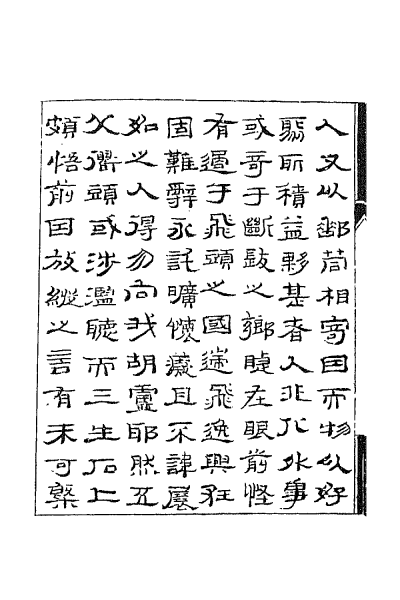 人又以郵筒相寄因而物以好
聚所積益夥甚者人非化外事
或奇于斷髮之鄉睫在眼前怪
有過于飛頭之國遄飛逸興狂
固難辭永託曠懷癡且不諱展
如之人得勿向我胡盧耶然五
父衢頭或涉濫聽而三生石上
頗悟前因放縱之言有未可槩